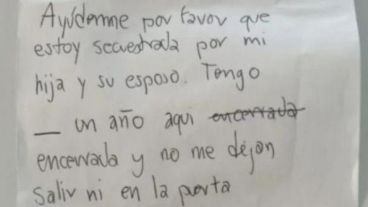 Ayúdenme por favor que
estoy secuestrada por mi
hija y su esposo. Tengo
__ un año aqui encerrada
encerrada y no me dejan
salir ni en la porta